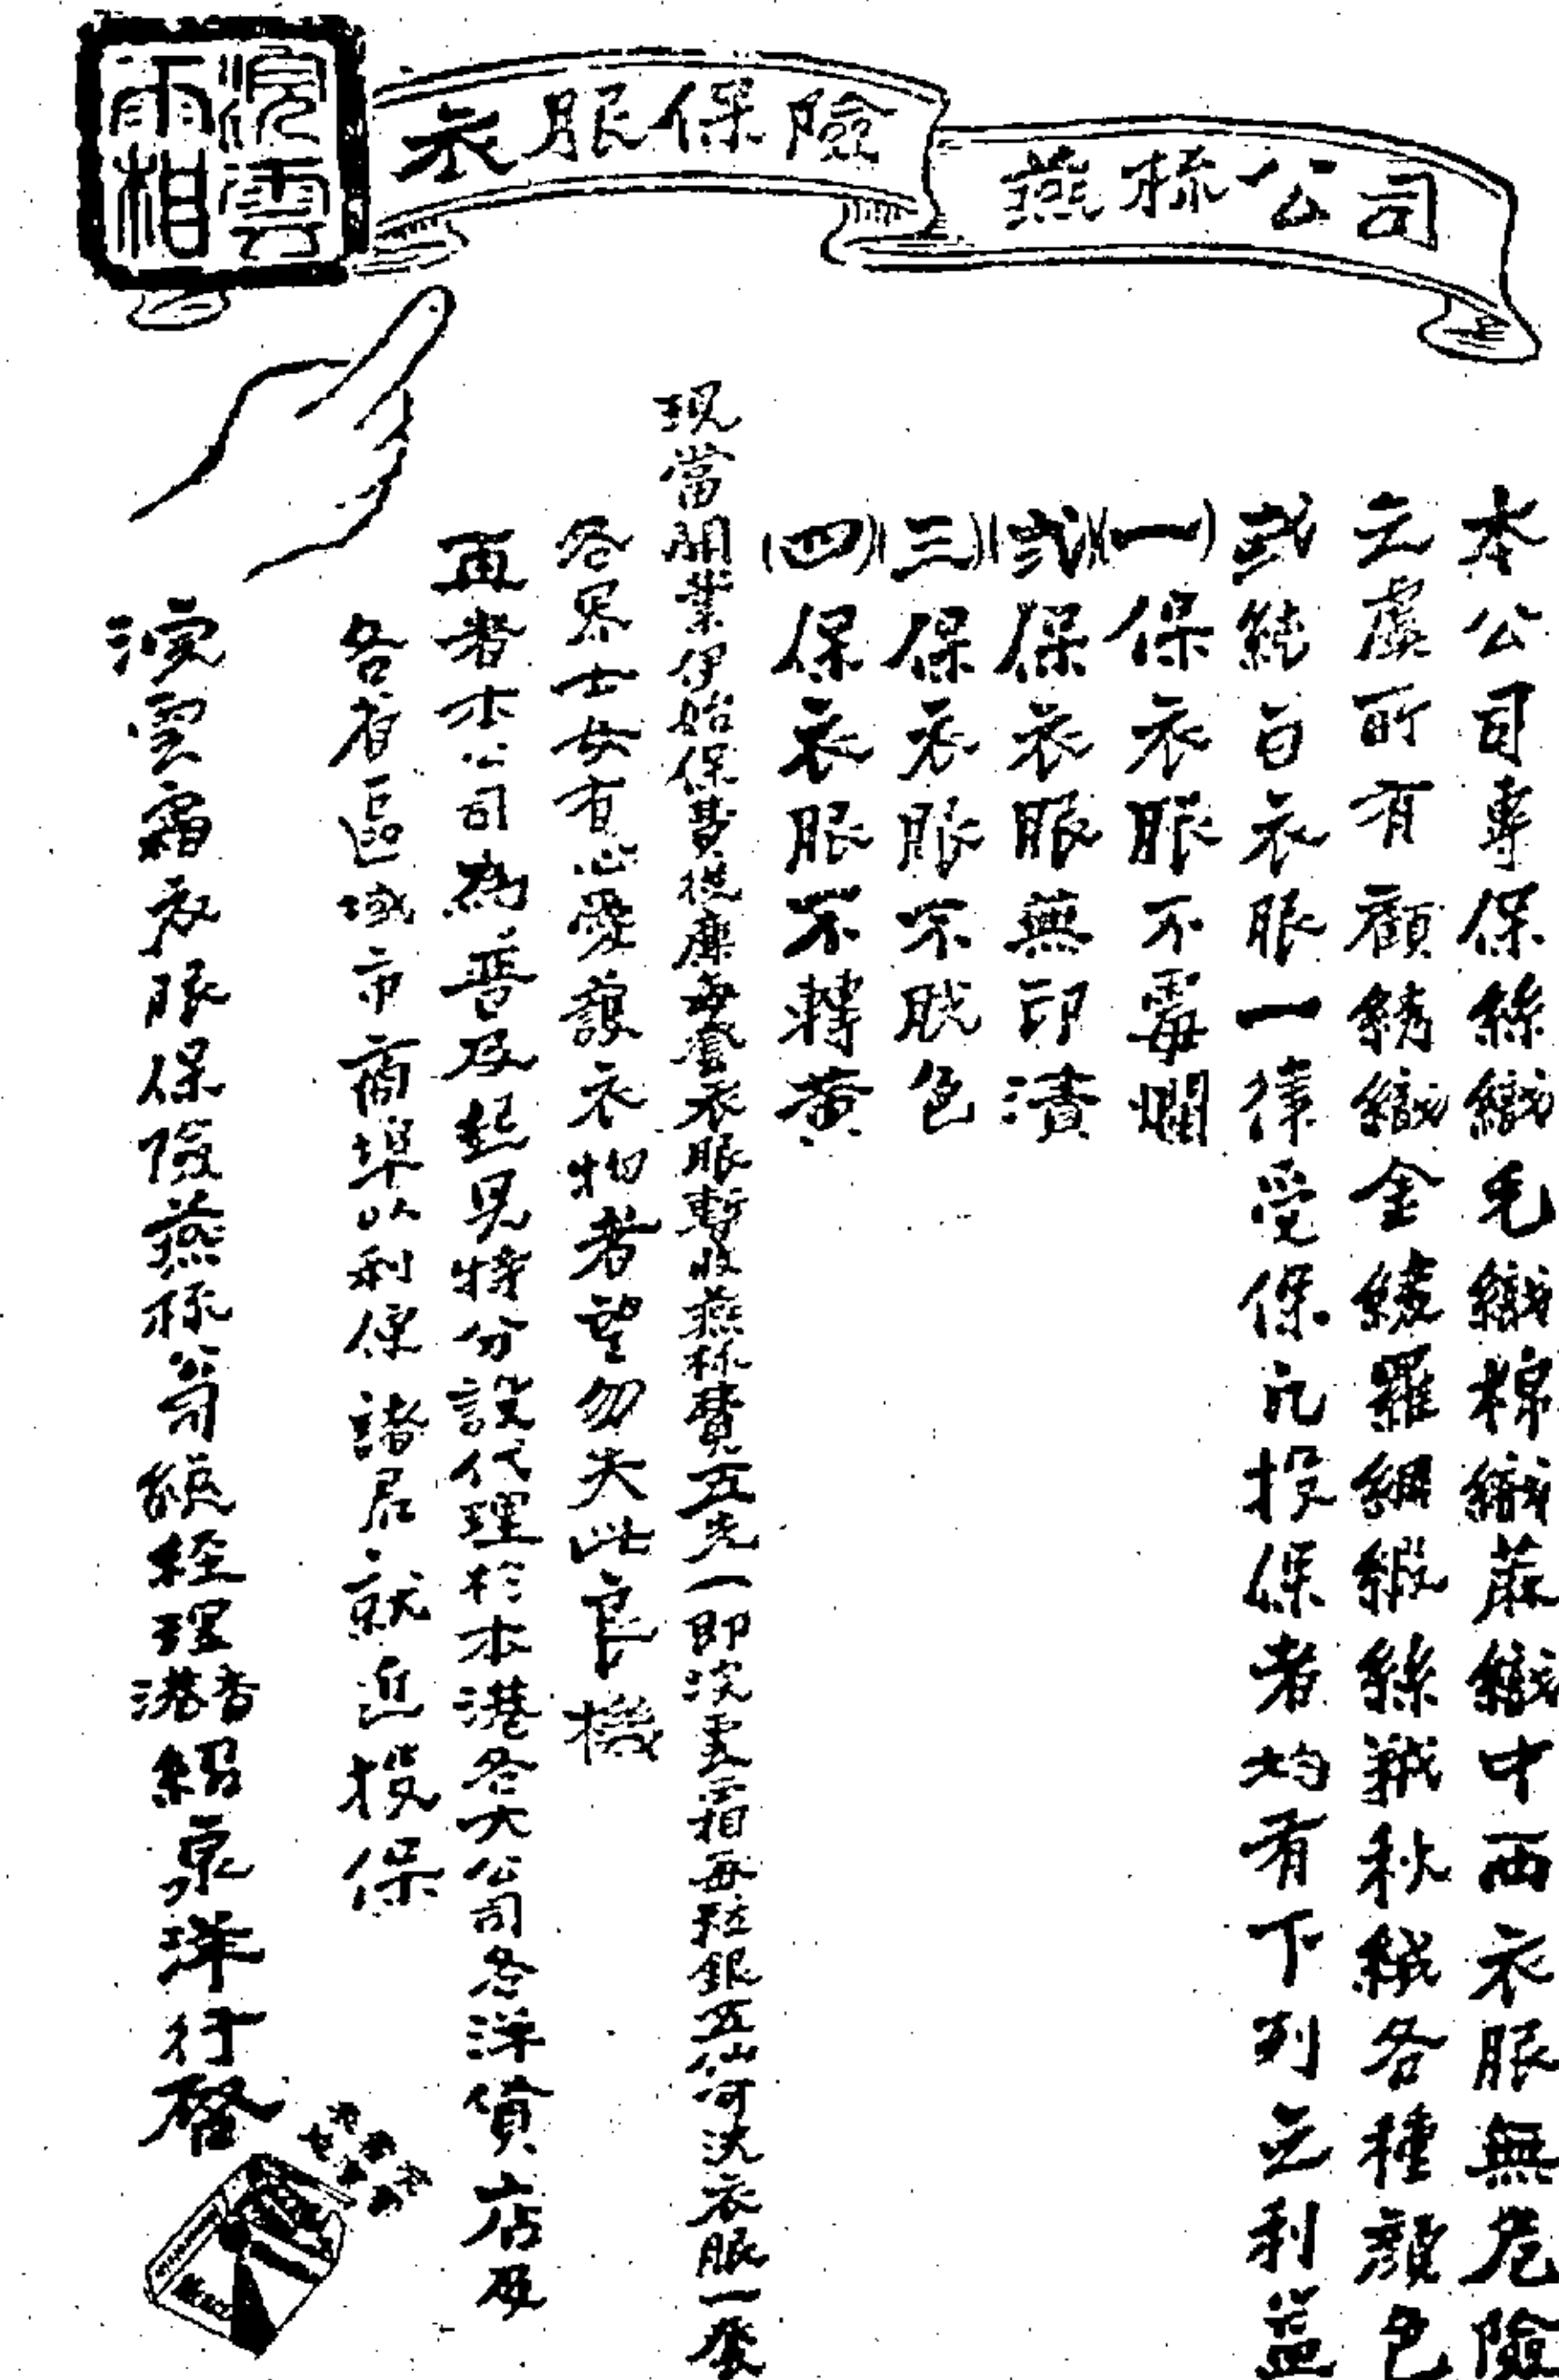 浣雲霜
衣服保險
燕梳公司
本公司專保絲織毛織棉織蔴織中西衣服無危險
之虞所有顧綉織金綾羅綢緞絲羢秋絨各種顏色
或純白衣服一律受保凡投保者均有下列之利益
(一)保衣服不霉爛
(弍)保衣服無印漬
(三)保衣服不脫色
(四)保衣服不轉黃
現當開業伊始保費從廉每套衣服暫收燕梳費五先一即浣雲霜每粒銀五仙可洗衣服一套
各界士女有心愛護衣物者望勿失此良機
再者本公司為普及起見特分設代理於本港各大公司各洋貨店及
各省區域市商埠以利便諸君就近投保
浣雲霜衣服保險燕梳公司總經理香港紹泉洋行啓